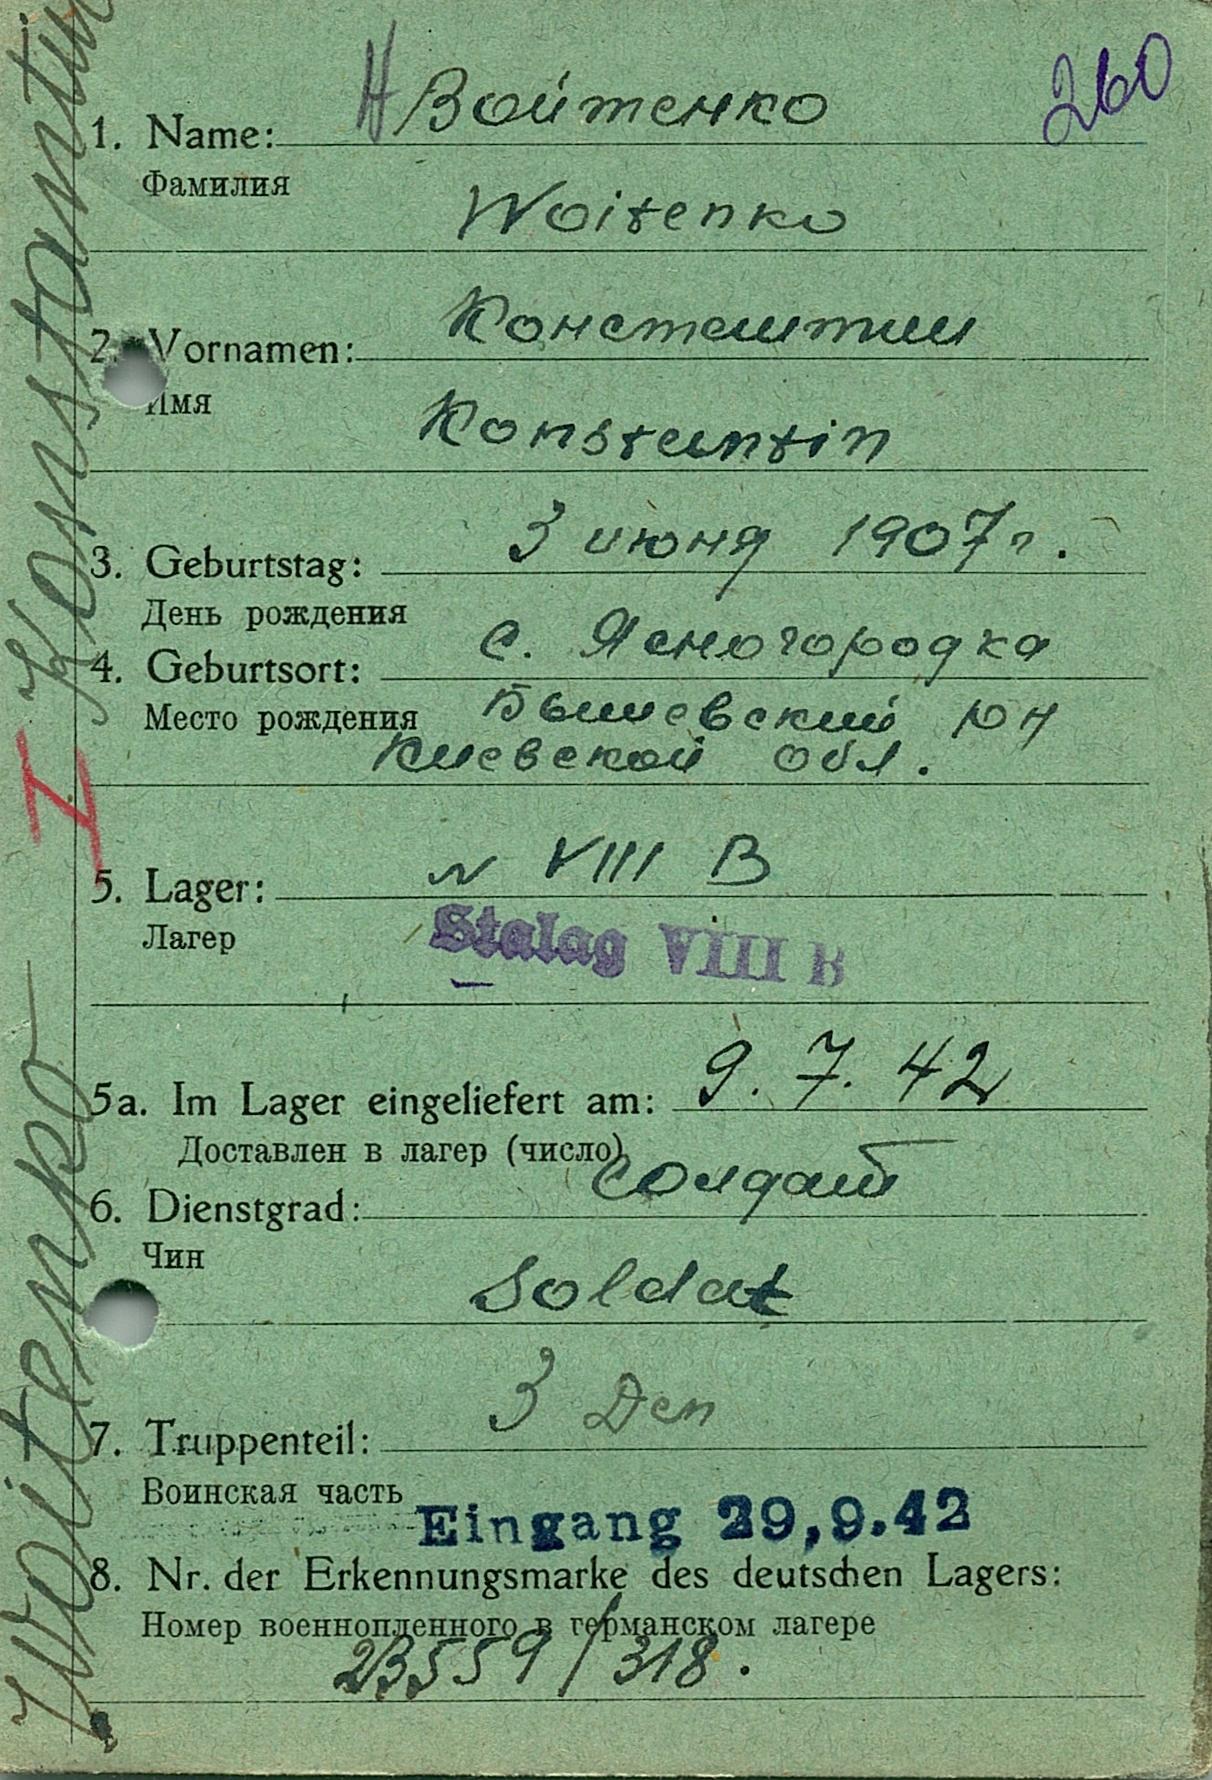 260
Н Войтенко
1. Name:
Фамилия
Woitenko
Константин
2. Vornamen:
Имя
Konstantin
3 июня 1907 г.
3. Geburtstag:
День рождения
с. Ясногородка
4. Geburtsort:
Место рождения Бышевский р-н
Киевской обл.
N VIII B
5. Lager:
Лагер
Stalag VIII B
5a. Im Lager eingeliefert am: 9. 7. 42
Доставлен в лагер (число)
солдат
6. Dienstgrad:
Чин
Soldat
3
7. Truppenteil:
Воинская часть
Eingang 29,9.42
8. Nr. der Erkennungsmarke des deutschen Lagers:
Номер военнопленного в германском лагере
23559/318.
Woitenko I Konstantin